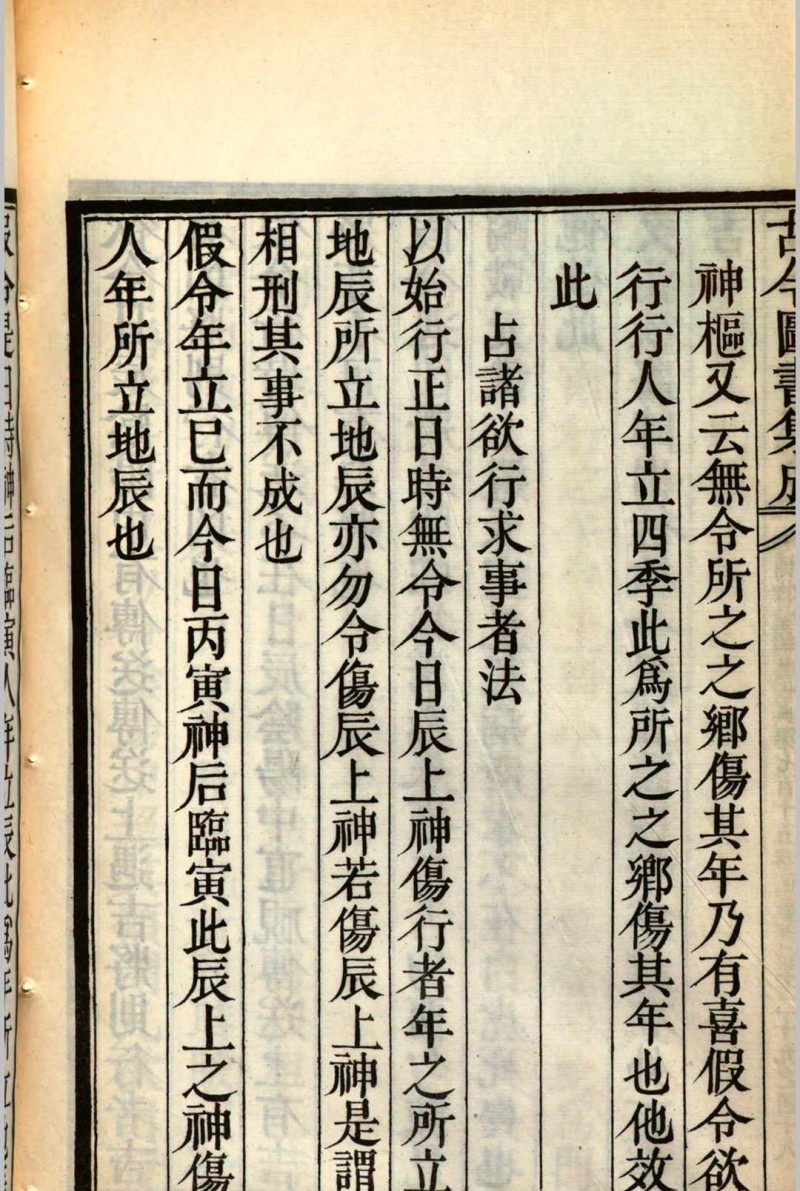 古今圖書集成
神樞又云無令所之之鄉傷其年乃有喜假令欲
行行人年立四季此爲所之之鄉傷其年也他效
此
占諸欲行求事者法
以始行正日時無令今日辰上神傷行者年之所立
地辰所立地辰亦勿令傷辰上神若傷辰上神是謂
相刑其事不成也
假令年立巳而今日丙寅神后臨寅此辰上之神傷
人年所立地辰也